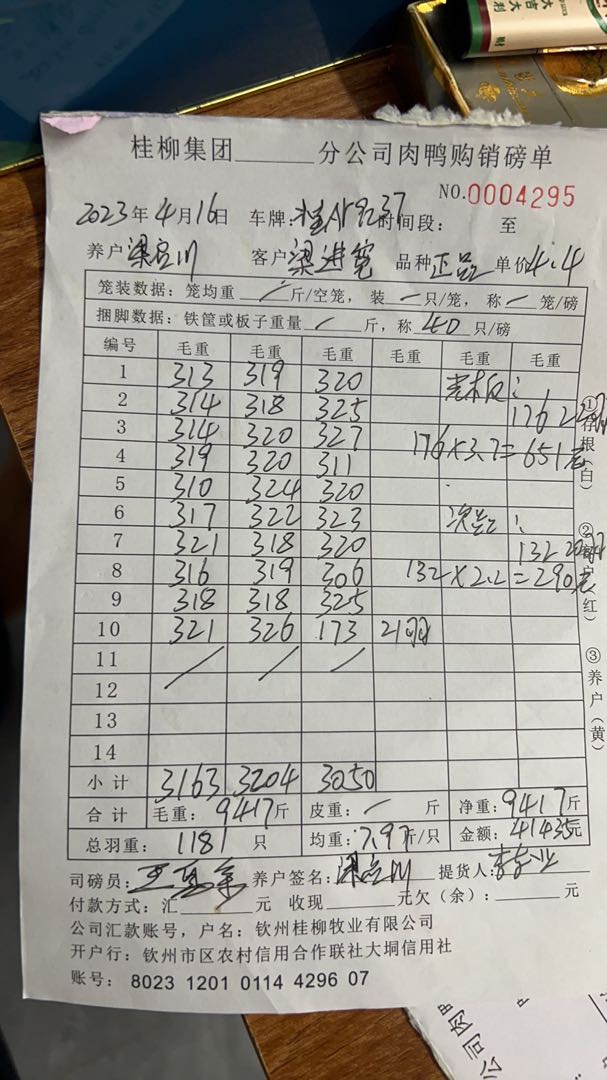 大吉大利
财
桂柳集团______分公司肉鸭购销磅单
NO.0004295
2023年4月16日 车牌: 时间段: 至
养户 客户 梁进宽 品种 正品 单价 4.4
笼装数据：笼均重 / 斤/空笼，装 一 只/笼，称 一 笼/磅
捆脚数据：铁筐或板子重量 / 斤，称 40 只/磅
编号 毛重 毛重 毛重 毛重 毛重 毛重
1 313 319 320
2 314 318 325 176
3 314 320 327 176×3.7=651元
4 319 320 311
5 310 324 320
6 317 322 323 次品:
7 321 318 320 132
8 316 319 306 132×2.2=290元
9 318 318 325
10 321 326 173 21羽
11 / / /
12
13
14
小计 3163 3204 3050
合计 毛重: 9417斤 皮重: / 斤 净重: 9417斤
总羽重: 1181 只 均重: 7.97斤/只 金额: 41435元
司磅员: 养户签名: 提货人:
付款方式：汇______元 收现______元欠（余）：______元
公司汇款账号，户名：钦州桂柳牧业有限公司
开户行：钦州市区农村信用合作联社大垌信用社
账号： 8023 1201 0114 4296 07
①存根（白）
②客户（红）
③养户（黄）
公司肉鸭